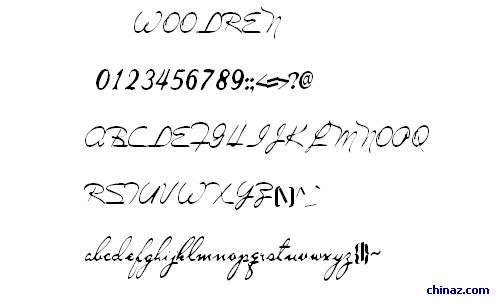 WOODREN
0123456789:;<=>?@
ABCDEFGHIJKLMNOPQ
RSTUVWXYZ[\]^_`
abcdefghijklmnopqrstuvwxyz{|}~
chinaz.com